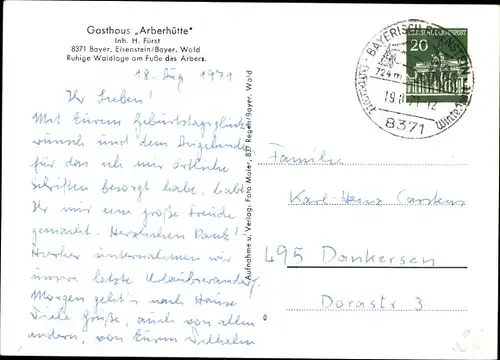 Gasthaus „Arberhütte"
Inh. H. Fürst
8371 Bayer. Eisenstein/Bayer. Wald
Ruhige Waldlage am Fuße des Arbers.
18. Aug 1971
Ihr Lieben!
Mit Eurem Geburtstagsglück-
wunsch und dem Angebinde
für das ich mir örtliche
schriften besorgt habe, habt
Ihr mir eine große Freude
gemacht. Herzlichen Dank!
Vorher unternahmen wir
unsere letzte Urlaubswanderg.
Morgen geht's nach Hause
Viele Grüße, auch von allen
andern, von Eurem Wilhelm
Aufnahme u. Verlag: Foto Maier, 837 Regen/Bayer. Wald
BAYERISCH EISENSTEIN
724 m
19.8.71-12
8371
Winter
DEUTSCHE BUNDESPOST
20
Familie
Karl-Heinz Carstens
495 Dankersen
Dorastr. 3